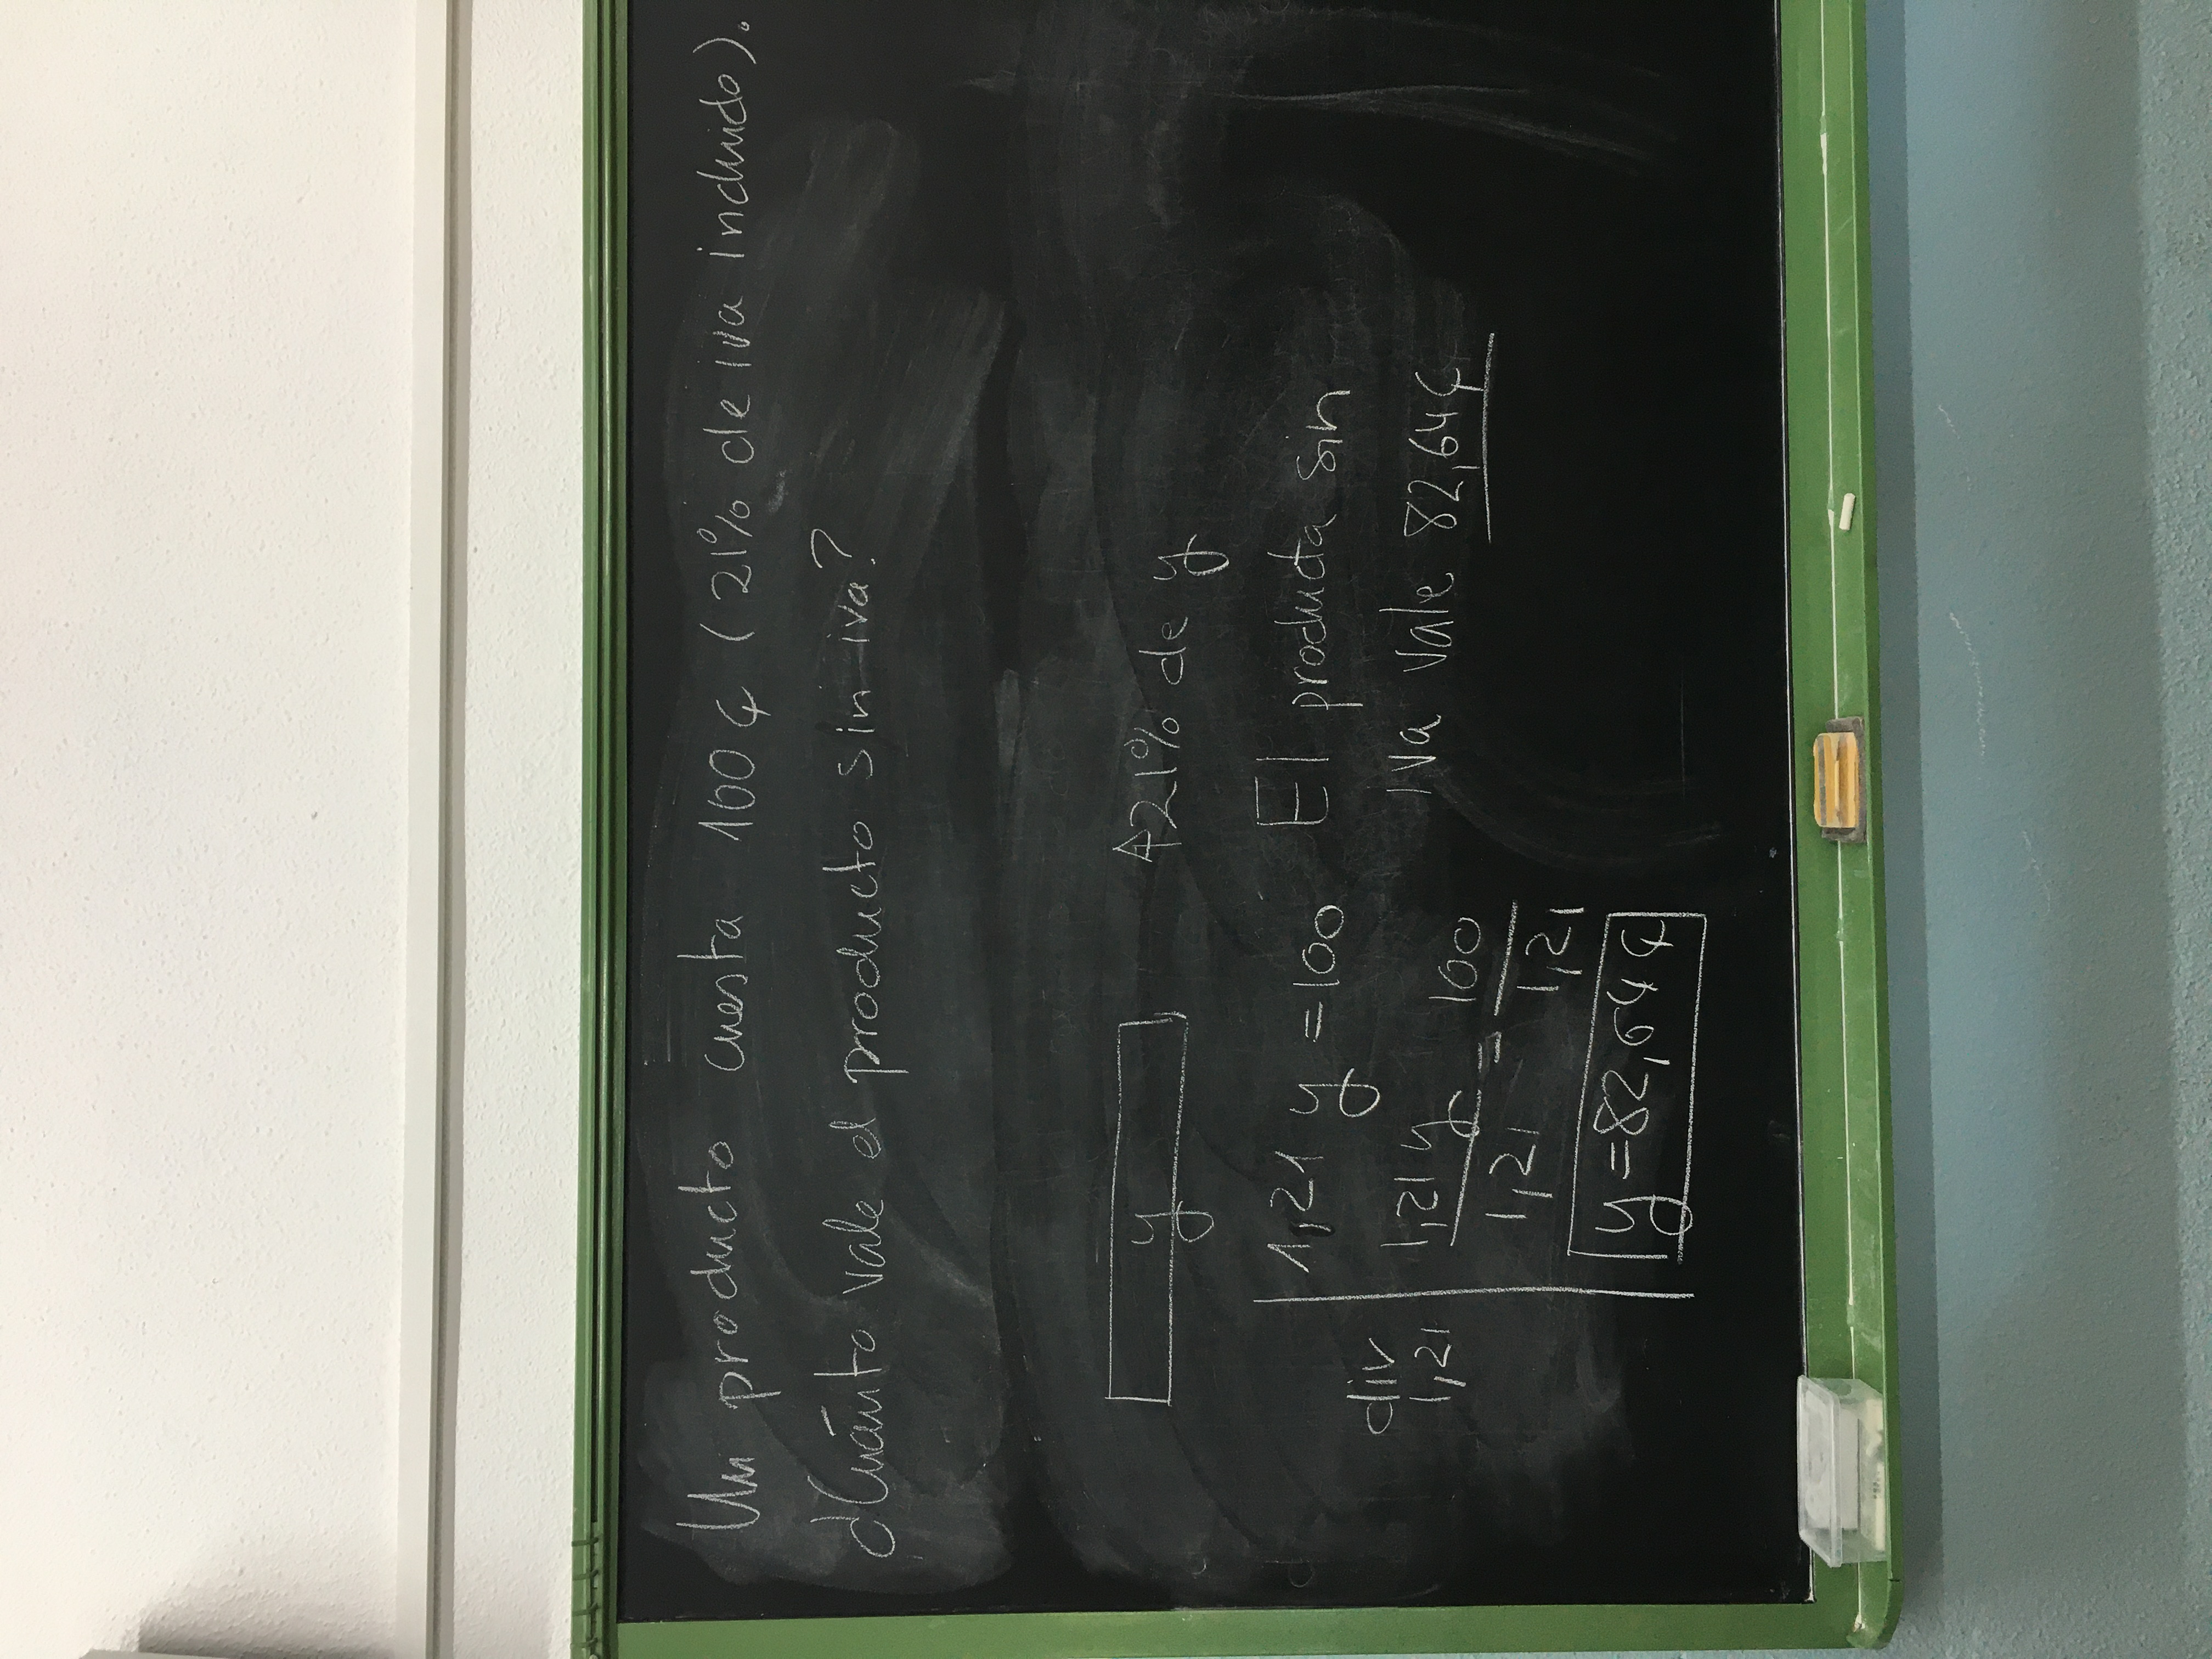 Un producto cuesta 100 € (21% de iva incluido).
¿Cuánto vale el producto sin iva?
y
↑21% de y
1,21 y = 100
div
1,21
1,21 y / 1,21 = 100 / 1,21
y = 82,64 €
El producto sin
iva vale 82,64 €